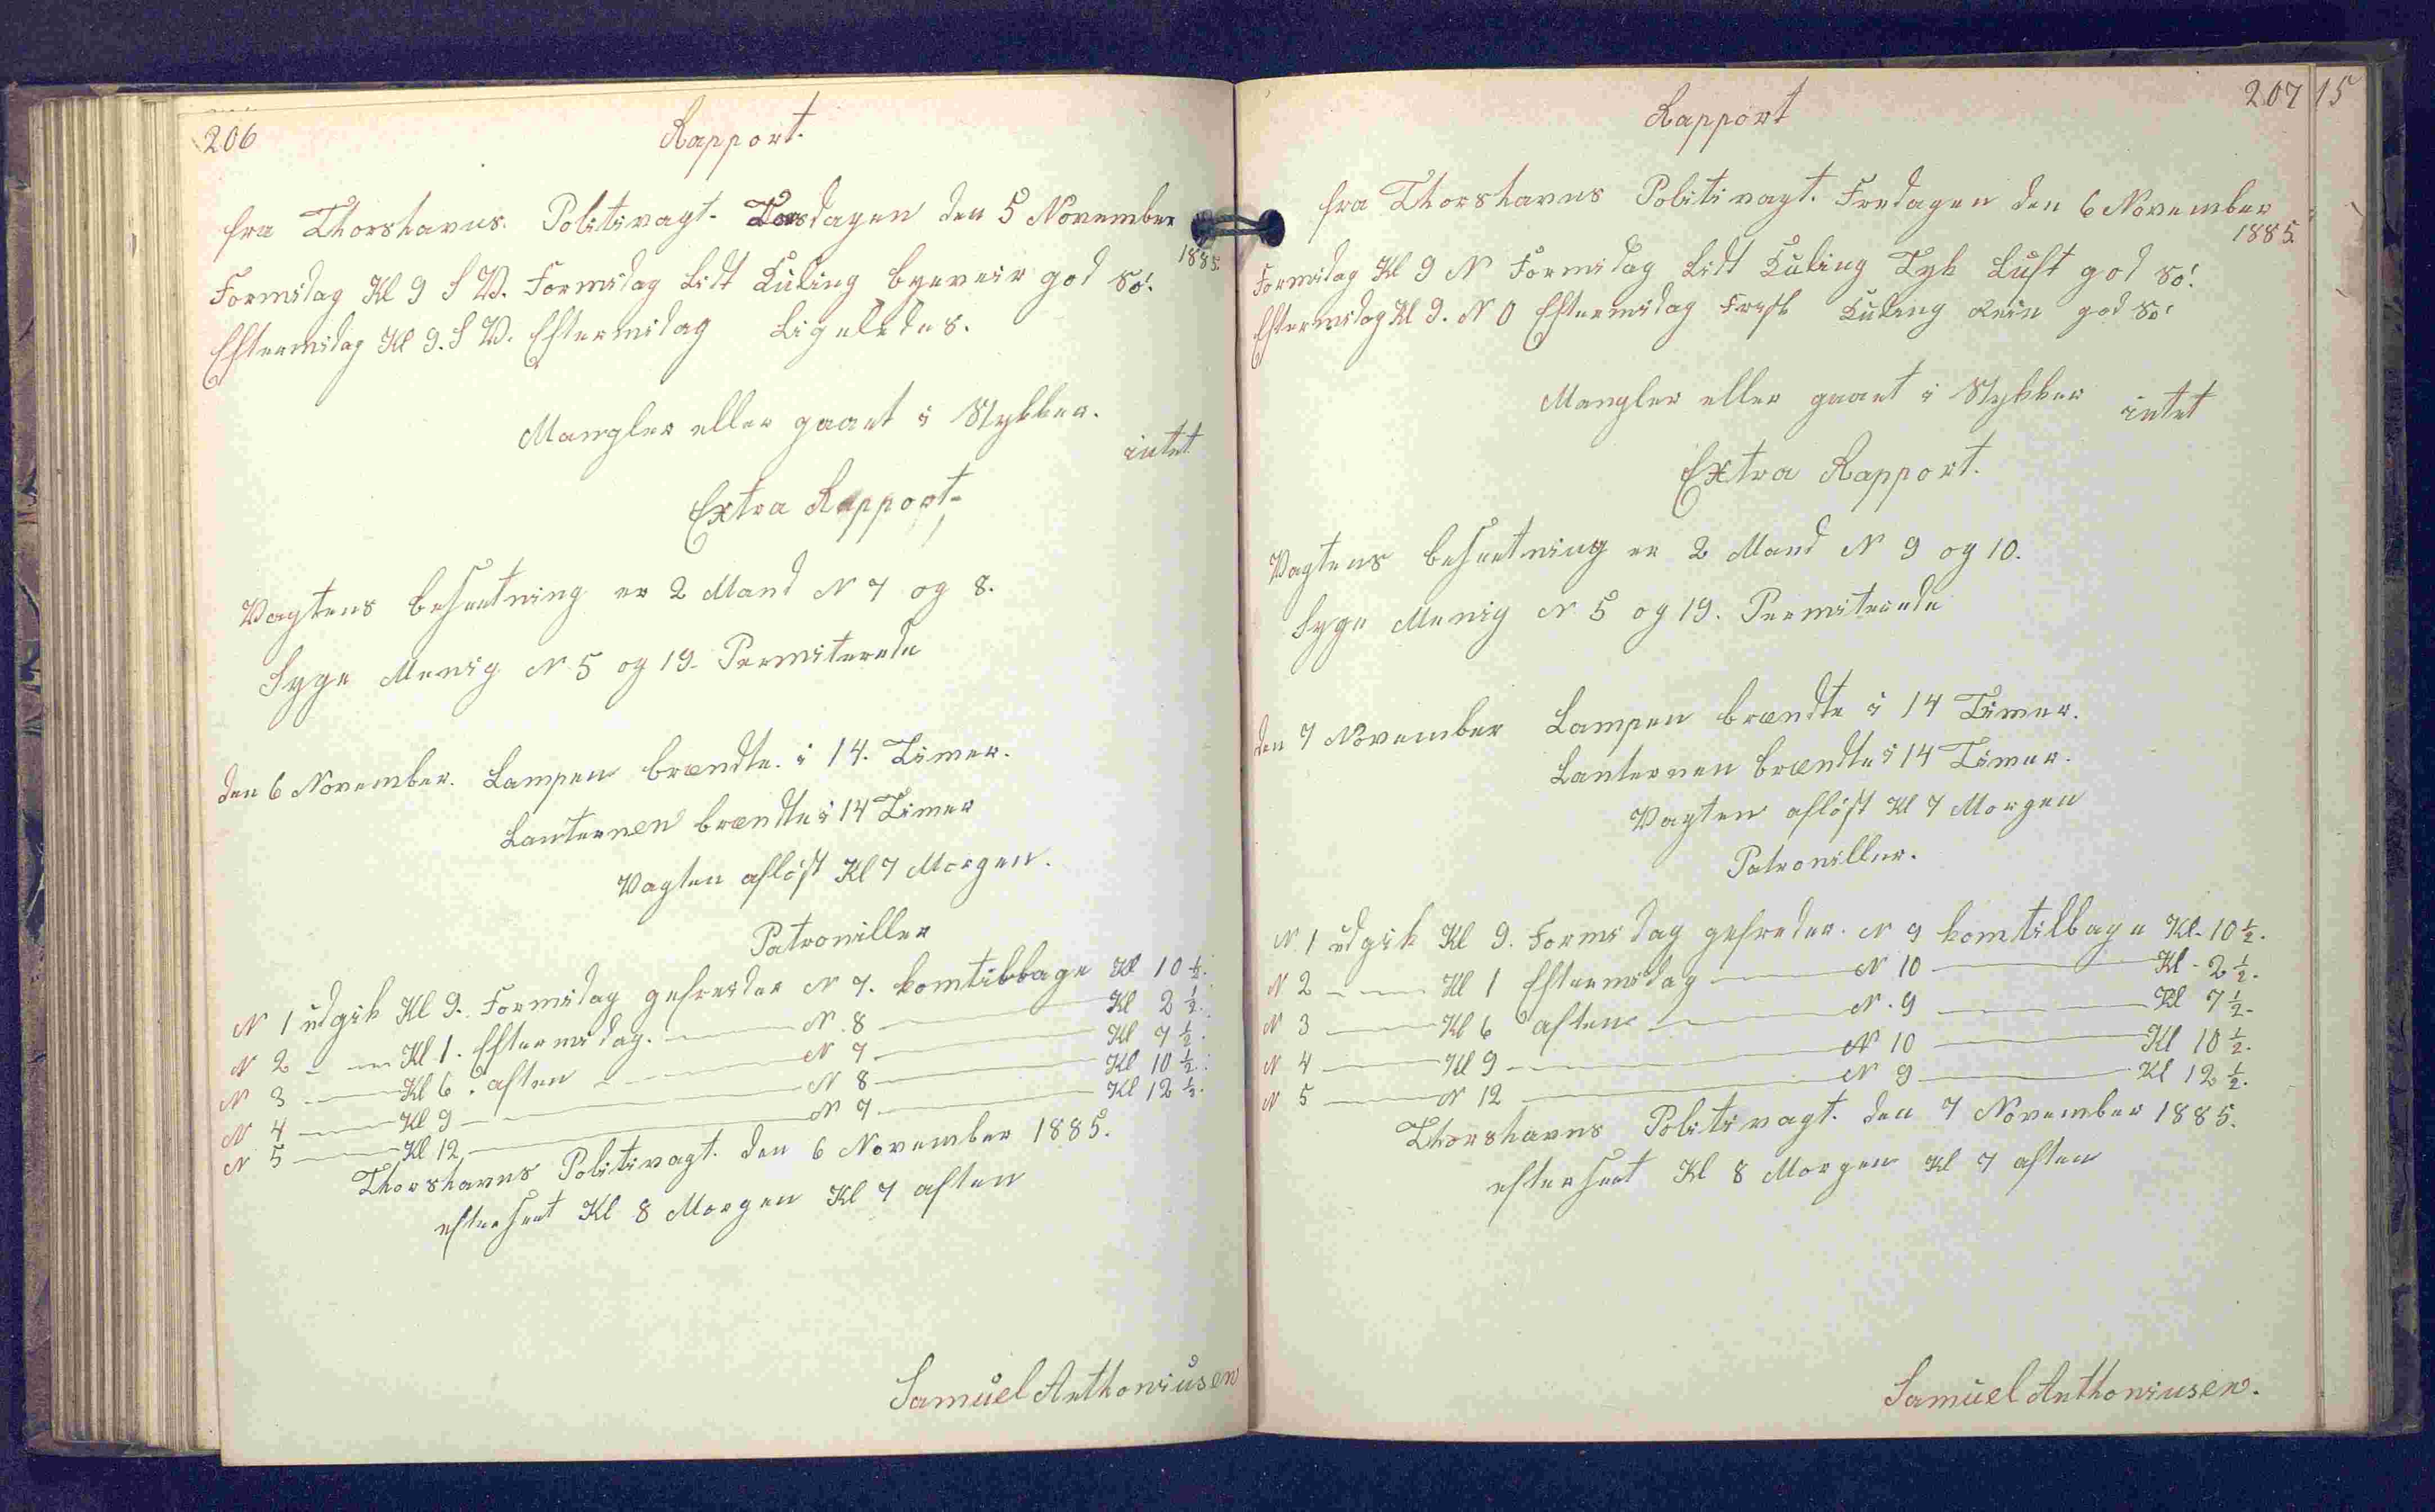 206
Rapport.
fra Thorshavns. Politivagt. Torsdagen den 5 November
1885.
Formidag Kl 9 S V. Formidag Lidt Kuling byeveir god Sö.
Eftermidag Kl 9. S V. Eftermidag Ligeledes.
Mangler eller gaaet i Stykker.
intet
Extra Rapport-
Vagtens besætning er 2 Mand N 7 og 8.
Syge Menig N 5 og 19- Permiterede
den 6 November. Lampen brændte i 14. Timer.
Lanternen brændte i 14 Timer
Vagten aflöst Kl 7 Morgen.
Patrouiller
N 1 udgik Kl 9. Formidag gefreider N 7. komtilbage Kl 10 ½.
N 2 — Kl 1. Eftermidag. — N. 8 — Kl 2 ½.
N 3 — Kl 6. aften — N 7 — Kl 7 ½.
N 4 — Kl 9 — N 8 — Kl 10 ½.
N 5 — Kl 12 — N 7 — Kl 12 ½.
Thorshavns Politivagt. den 6 November 1885.
efterseet Kl 8 Morgen Kl 7 aften
Samuel Anthoniusen
207 15
Rapport
fra Thorshavns Politivagt. Fredagen den 6 November
1885.
Formidag Kl 9 N Formidag Lidt Kuling Tyk Luft god Sö.
Eftermidag Kl 9. N O Eftermidag Frisk Kuling Rein god Sö.
Mangler eller gaaet i Stykker intet
Extra Rapport.
Vagtens besætning er 2 Mand N 9 og 10.
Syge Menig N 5 og 19. Permiterede
den 7 November Lampen brændte i 14 Timer.
Lanternen brændte i 14 Timer.
Vagten aflöst Kl 7 Morgen
Patrouiller.
N. 1 udgik Kl 9. Formidag gefreder. N 9 komtilbage Kl. 10 ½.
N 2 — Kl 1 Eftermidag — N 10 — Kl. 2 ½.
N 3 — Kl 6 aften — N. 9 — Kl 7 ½.
N 4 — Kl 9 — N 10 — Kl 10 ½.
N 5 — N 12 — N 9 — Kl 12 ½.
Thorshavns Politivagt. den 7 November 1885.
efterseet Kl 8 Morgen Kl 7 aften
Samuel Anthoniusen.